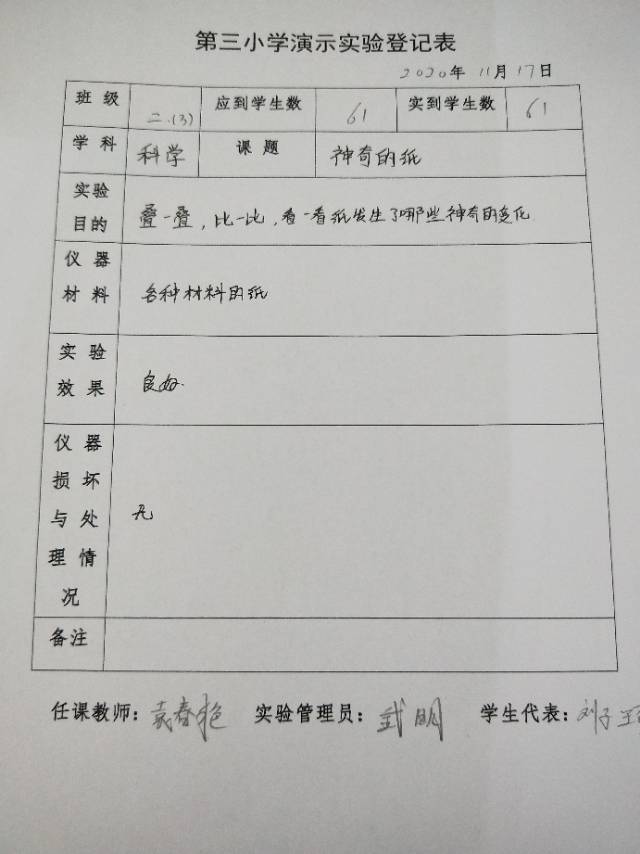 第三小学演示实验登记表
2020年 11月17日
班级 二.(3) 应到学生数 61 实到学生数 61
学科 科学 课题 神奇的纸
实验目的 叠一叠，比一比，看一看纸发生了哪些神奇的变化
仪器材料 各种材料的纸
实验效果 良好.
仪器损坏与处理情况 无
备注
任课教师：袁春艳 实验管理员：武明 学生代表：刘子